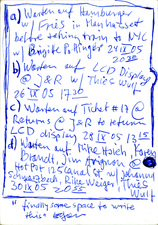 a) Warten auf Hamburger
w/ Fries in Manhasset
before taking train to NYC
w/ Birgitte Pollinger 28 IX 05 2030
b) Warten auf LCD Display
@ J&R w/ Thies Wulf
26 IX 05 1730
c) Warten auf Ticket #17 @
Returns @ J&R to return
LCD display 28 IX 05 1315
d) Warten auf Mike Hoich, Karen
Brandt, Jim Avignon @
Hot Pot 125 Canal St w/ Johanny
Schwarzbach, Rike Weiger, Thies Wulf
30 IX 05 2035
finally some space to write
this